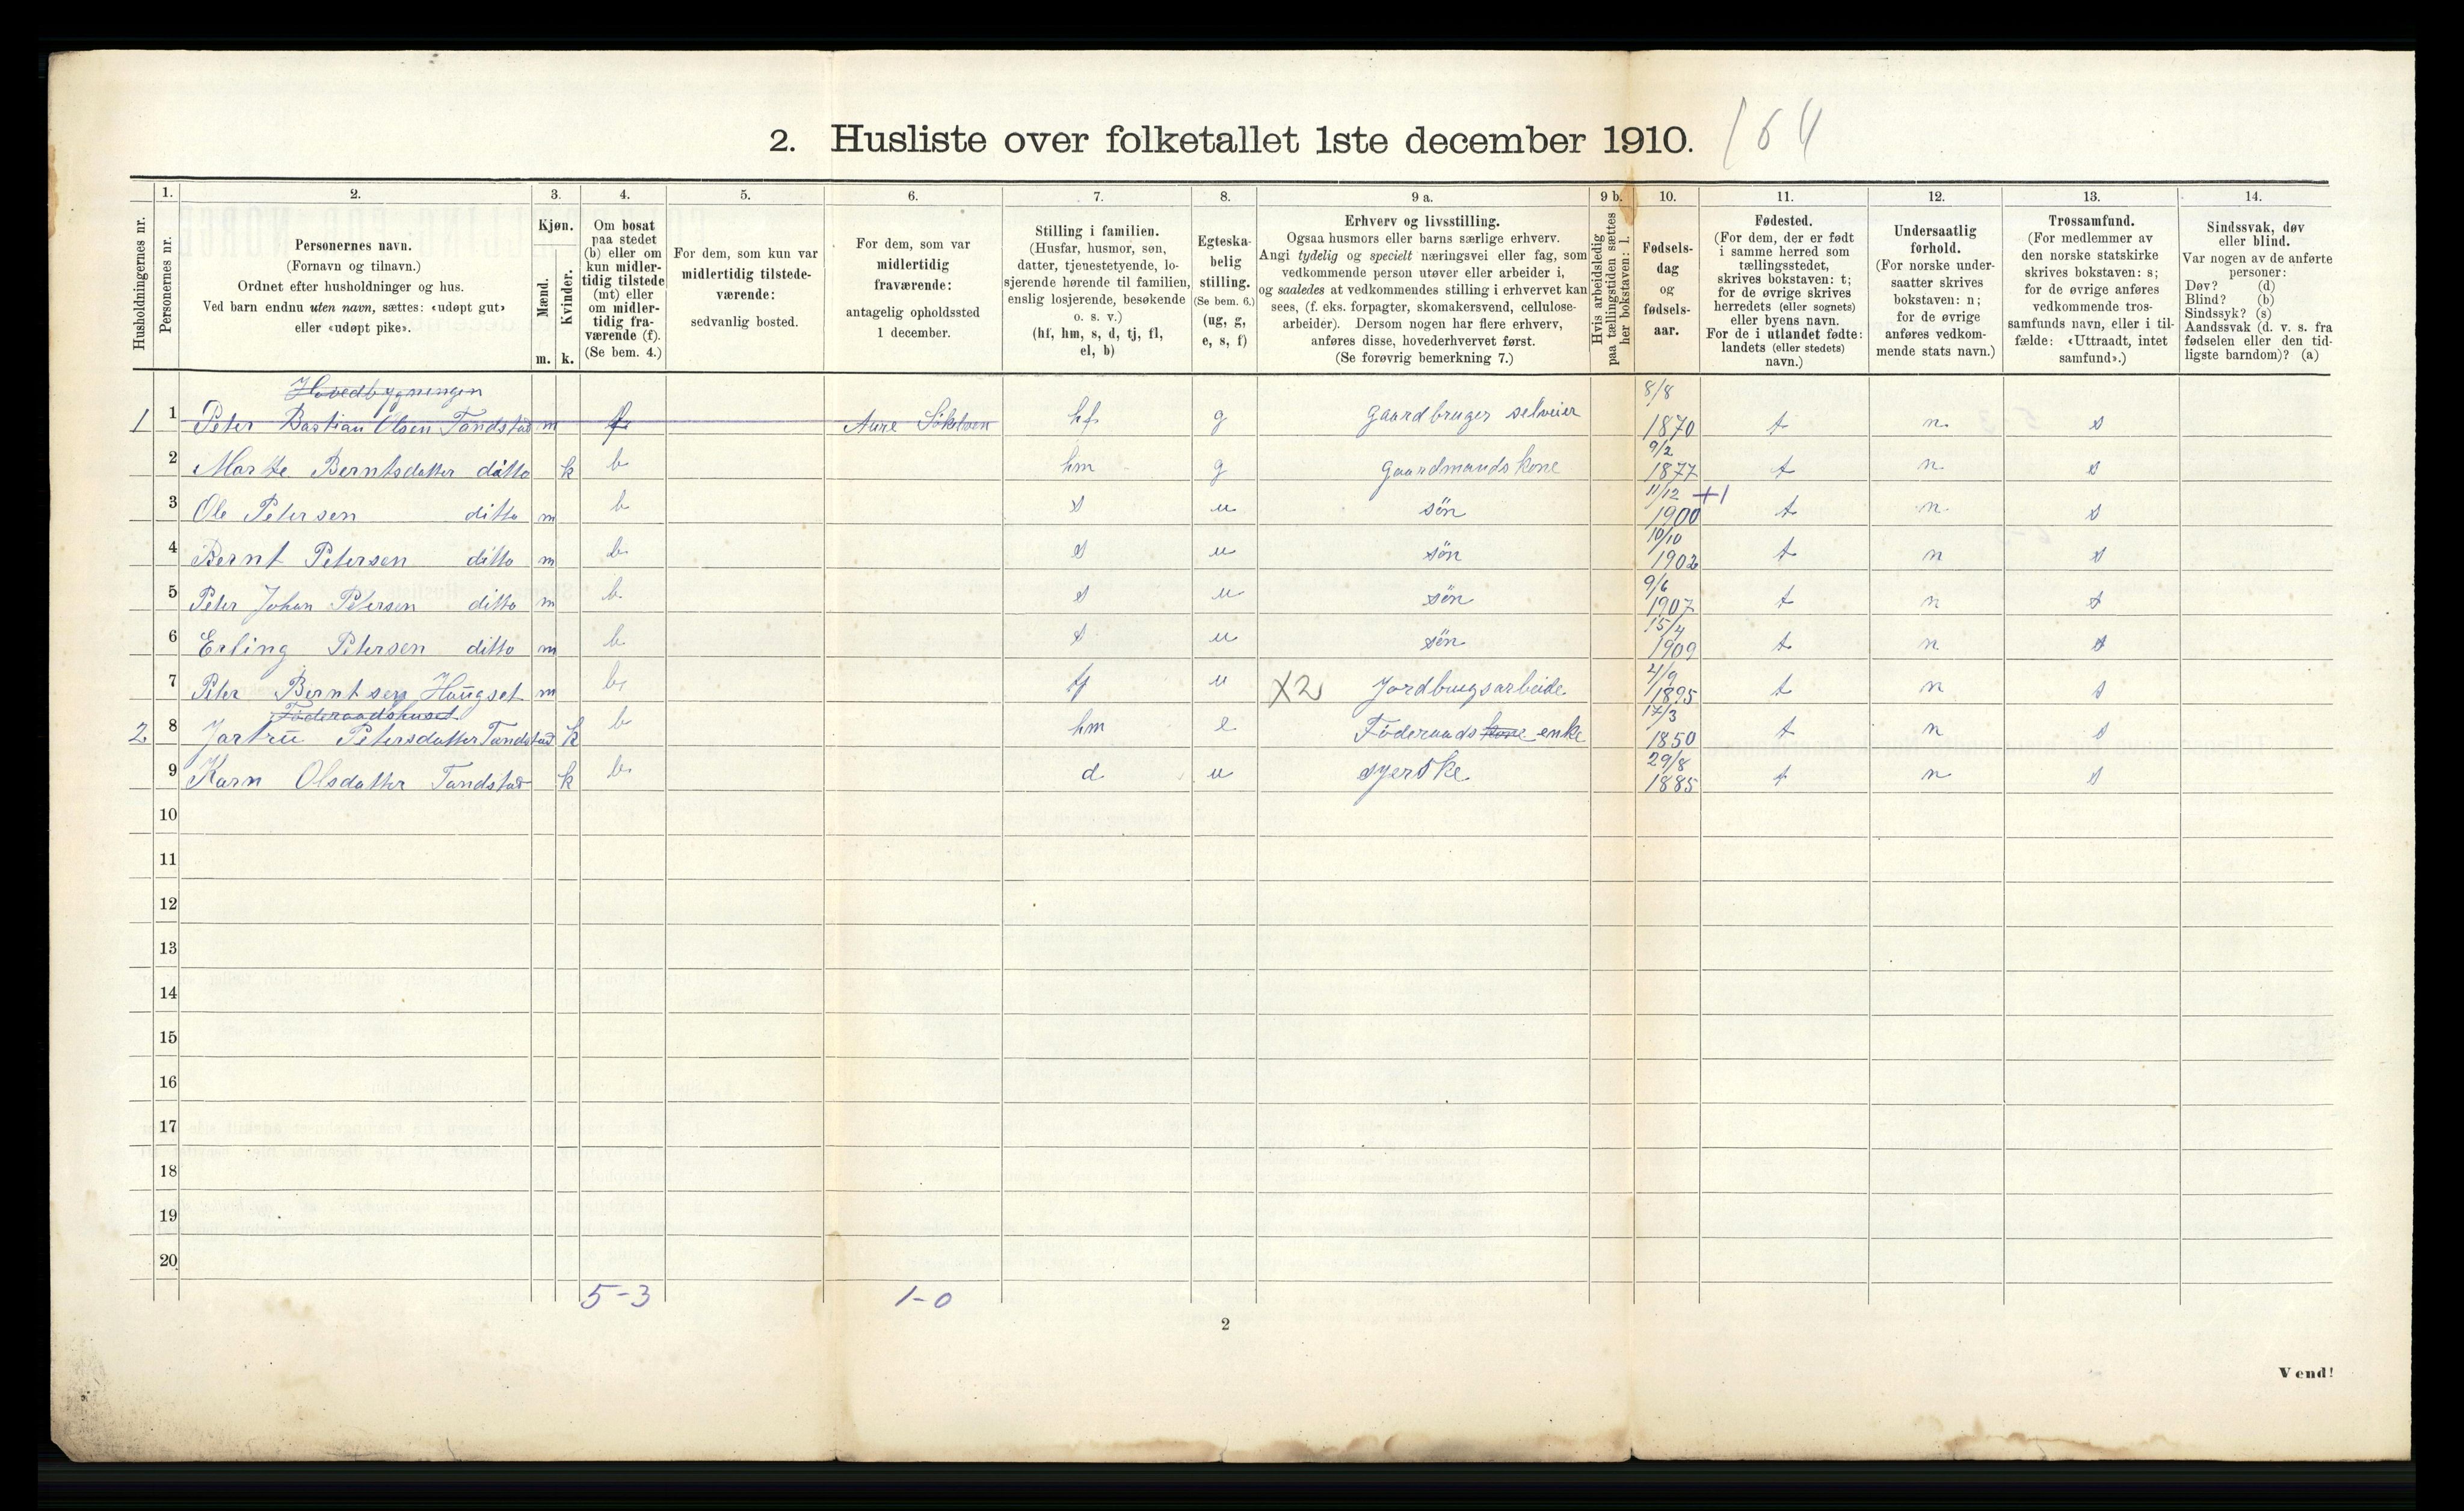 2. Husliste over folketallet 1ste december 1910. 164
Husholdningernes nr.
1. Personernes nr.
2. Personernes navn. (Fornavn og tilnavn.) Ordnet efter husholdninger og hus. Ved barn endnu uten navn, sættes: «udøpt gut» eller «udøpt pike».
3. Kjøn. Mænd. m. Kvinder. k.
4. Om bosat paa stedet (b) eller om kun midlertidig tilstede (mt) eller om midlertidig fraværende (f). (Se bem. 4.)
5. For dem, som kun var midlertidig tilstedeværende: sedvanlig bosted.
6. For dem, som var midlertidig fraværende: antagelig opholdssted 1 december.
7. Stilling i familien. (Husfar, husmor, søn, datter, tjenestetyende, losjerende hørende til familien, enslig losjerende, besøkende o. s. v.) (hf, hm, s, d, tj, fl, el, b)
8. Egteskabelig stilling. (Se bem. 6.) (ug, g, e, s, f)
9 a. Erhverv og livsstilling. Ogsaa husmors eller barns særlige erhverv. Angi tydelig og specielt næringsvei eller fag, som vedkommende person utøver eller arbeider i, og saaledes at vedkommendes stilling i erhvervet kan sees, (f. eks. forpagter, skomakersvend, cellulosearbeider). Dersom nogen har flere erhverv, anføres disse, hovederhvervet først. (Se forøvrig bemerkning 7.)
9 b. Hvis arbeidsledig paa tællingstiden sættes her bokstaven: l.
10. Fødselsdag og fødselsaar.
11. Fødested. (For dem, der er født i samme herred som tællingsstedet, skrives bokstaven: t; for de øvrige skrives herredets (eller sognets) eller byens navn. For de i utlandet fødte: landets (eller stedets) navn.)
12. Undersaatlig forhold. (For norske undersaatter skrives bokstaven: n; for de øvrige anføres vedkommende stats navn.)
13. Trossamfund. (For medlemmer av den norske statskirke skrives bokstaven: s; for de øvrige anføres vedkommende trossamfunds navn, eller i tilfælde: «Uttraadt, intet samfund».)
14. Sindssvak, døv eller blind. Var nogen av de anførte personer: Døv? (d) Blind? (b) Sindssyk? (s) Aandssvak (d. v. s. fra fødselen eller den tidligste barndom)? (a)
Hovedbygningen
1 1 Peter Bastian Olsen Tandstad m f Aure Sökelven hf g gaardbruger selveier 8/8 1870 t n s
2 Marte Berntsdatter ditto k b hm g gaardmands kone 9/2 1877 t n s
3 Ole Petersen ditto m b s u søn 11/12 1900 +1 t n s
4 Bernt Petersen ditto m b s u søn 10/10 1902 t n s
5 Peter Johan Petersen ditto m b s u søn 9/6 1907 t n s
6 Erling Petersen ditto m b s u søn 15/4 1909 t n s
7 Peter Berntsen Haugset m b tj u X2 Jordbrugsarbeide 4/9 1895 t n s
Föderaadshuset
2 8 Jartru Petersdatter Tandstad k b hm e Föderaads kone enke 17/3 1850 t n s
9 Karn Olsdatter Tandstad k b d u syerske 29/8 1885 t n s
10
11
12
13
14
15
16
17
18
19
20
5-3 1-0
2
Vend!